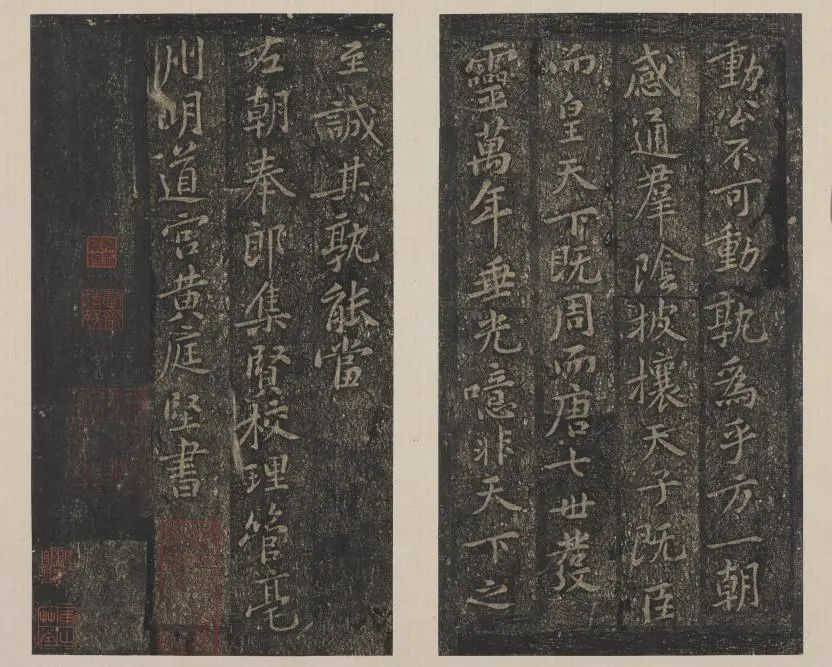 動公不可動孰為乎方一朝
感通羣陰披攘天子既臣
而皇天下既周而唐七世發
靈萬年垂光噫非天下之
至誠其孰能當
右朝奉郎集賢校理管亳
州明道宮黄庭堅書